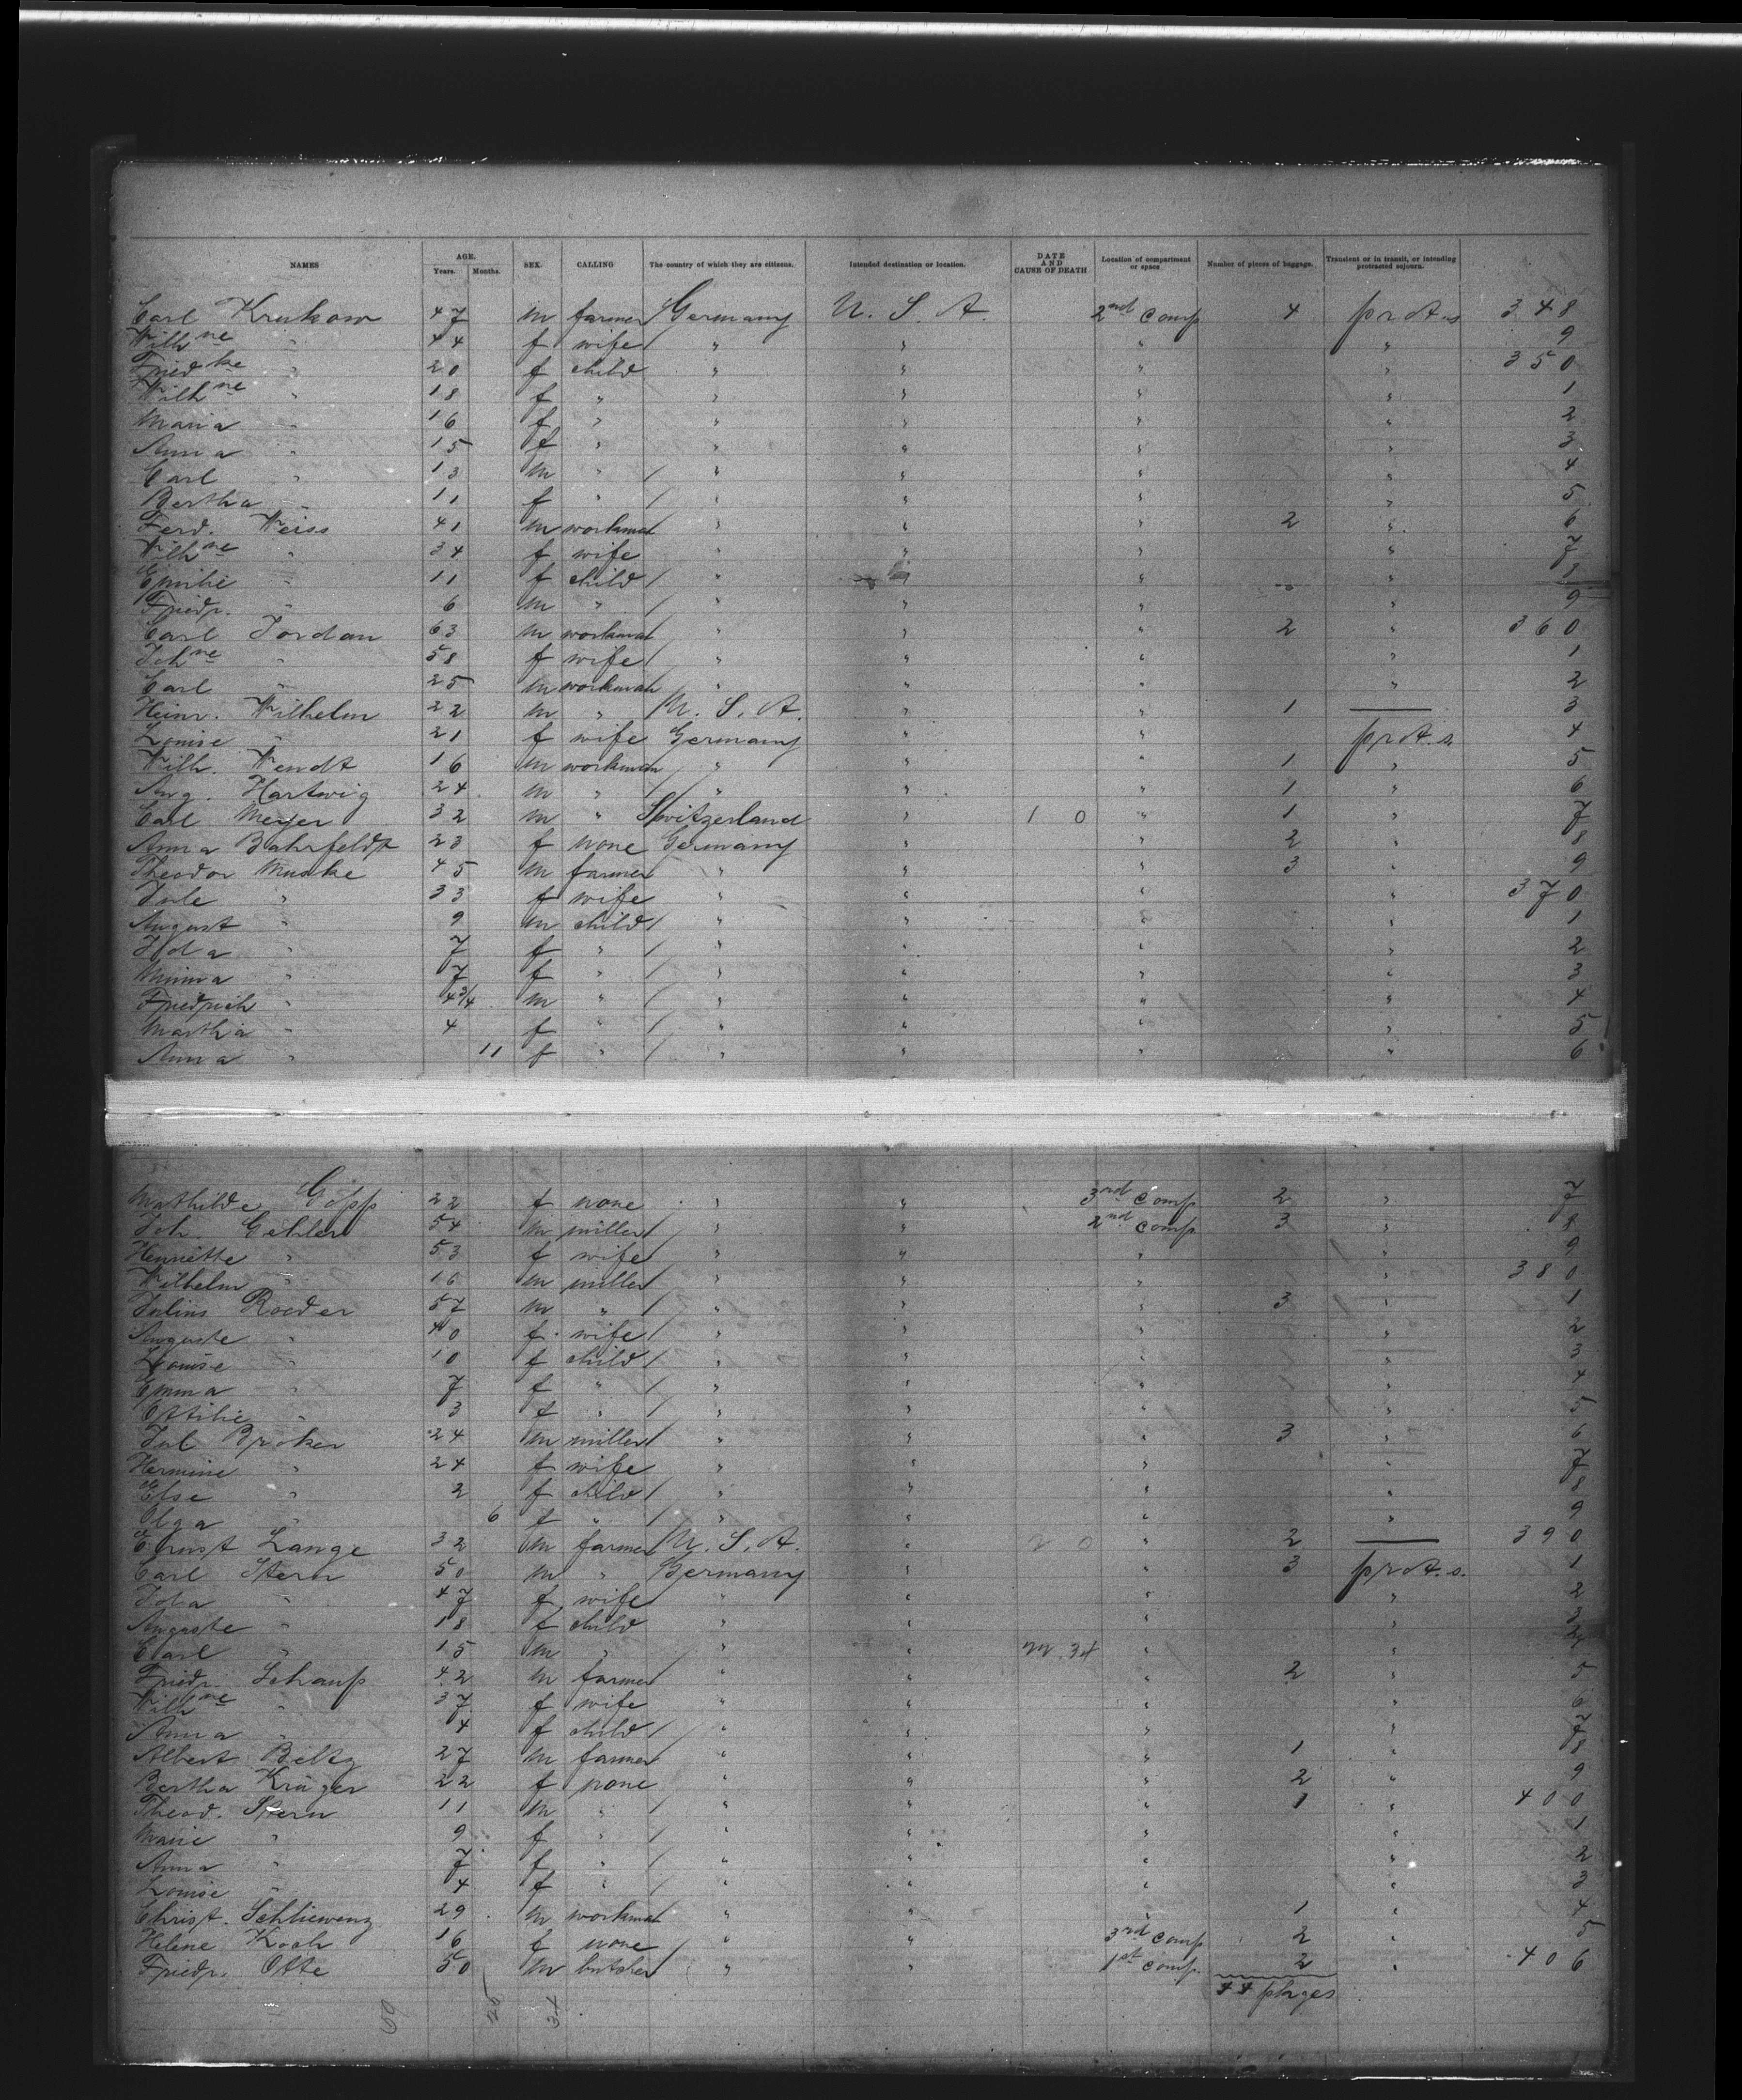 NAMES AGE. Years. Months. SEX. CALLING The country of which they are citizens. Intended destination or location. DATE AND CAUSE OF DEATH Location of compartment or space Number of pieces of baggage. Transient or in transit, or intending protracted sojourn.
Carl Krukow 47 m farmer Germany U. S. A. 2nd Comp 4 prot. s 348
Wilhne " 44 f wife " " " " 9
Friedke " 20 f child " " " " 350
Wilhne " 18 f " " " " " 1
Maria " 16 f " " " " " 2
Anna " 15 f " " " " " 3
Carl " 13 m " " " " " 4
Bertha " 11 f " " " " " 5
Ferd. Weiss 41 m workman " " " 2 " 6
Wilhne " 34 f wife " " " " 7
Emilie " 11 f child " " " " 8
Friedr. " 6 m " " " " " 9
Carl Jordan 63 m workman " " " 2 " 360
Johne " 58 f wife " " " " 1
Carl " 25 m workman " " " " 2
Heinr. Wilhelm 22 m " U. S. A. " " 1 — 3
Louise " 21 f wife Germany " " prot. s. 4
Wilh. Wendt 16 m workman " " " 1 " 5
Aug. Hartwig 24 m " " " " 1 " 6
Carl Meyer 32 m " Switzerland " 1 0 " 1 " 7
Anna Bahrfeldt 23 f none Germany " " 2 " 8
Theodor Muske 45 m farmer " " " 3 " 9
Jule " 33 f wife " " " " 370
August " 9 m child " " " " 1
Ida " 7 f " " " " " 2
Minna " 7 f " " " " " 3
Friedrich " 4 3/4 m " " " " " 4
Martha " 4 f " " " " " 5
Anna " 11 f " " " " " 6
Mathilde Gopp 22 f none " " 3rd Comp 2 " 7
Joh. Gehler 54 m miller " " 2nd Comp 3 " 8
Henriette " 53 f wife " " " " 9
Wilhelm " 16 m miller " " " " 380
Julius Roeder 57 m " " " " 3 " 1
Auguste " 40 f wife " " " " 2
Louise " 10 f child " " " " 3
Emma " 7 f " " " " " 4
Ottilie " 3 f " " " " " 5
Jul Broker 24 m miller " " " 3 " 6
Hermine " 24 f wife " " " " 7
Else " 2 f child " " " " 8
Olga " 6 f " " " " " 9
Ernst Lange 32 m farmer U. S. A. " 2 0 " 2 — 390
Carl Stern 50 m " Germany " " 3 prot. s. 1
Ida " 47 f wife " " " " 2
Auguste " 18 f child " " " " 3
Carl " 15 m " " " " " 4
Friedr. Schaup 42 m farmer " " " 2 " 5
Wilhne " 37 f wife " " " " 6
Anna " 4 f child " " " " 7
Albert Beltz 27 m farmer " " " 1 " 8
Bertha Krüger 22 f none " " " 2 " 9
Theod. Stern 11 m " " " " 1 " 400
Marie " 9 f " " " " " 1
Anna " 7 f " " " " " 2
Louise " 4 f " " " " " 3
Christ. Schliewenz 29 m workman " " " 1 " 4
Helene Koch 16 f none " " 3rd Comp 2 " 5
Friedr. Otte 50 m butcher " " 1st Comp. 2 " 406